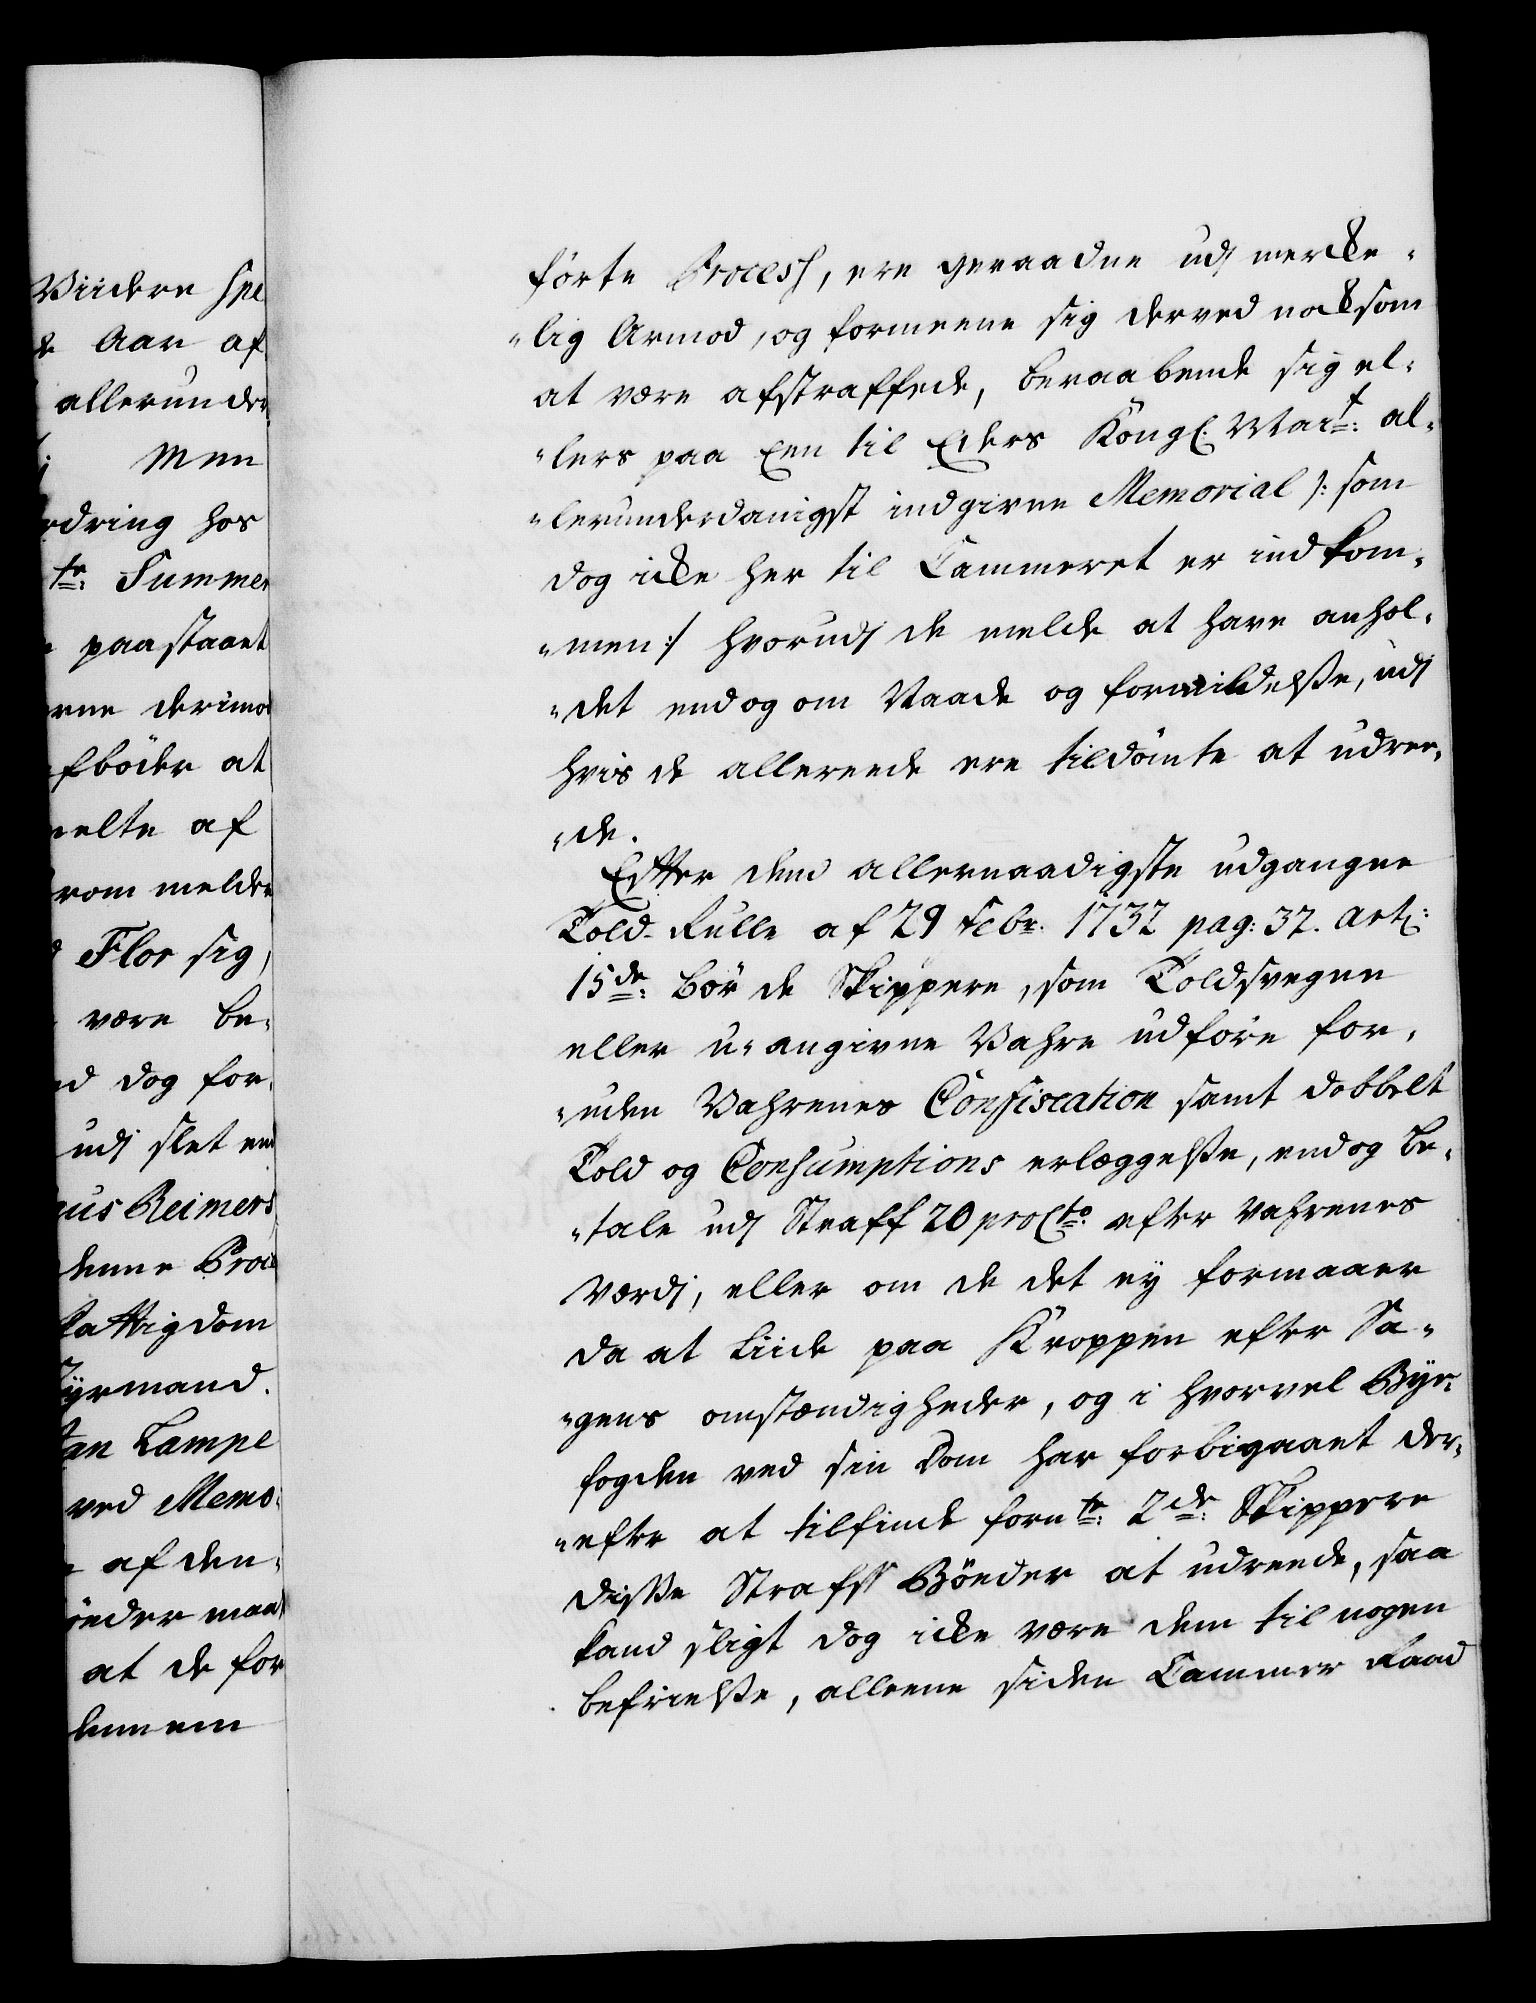 Viidere spe
e Aar af
allerunder
Men
rdring hos
te: Summer
paastaaet
rne derimod
fböder at
elte af
rom melder
Flor sig,
være be-
d dog for-
udj slet en
us Reimers
denne Proce
Fattigdom
yrmand.
an Lampe
ved Memo-
af den-
öeder maat
at de for
dennem
förte Process, ere geraadne udj mercke-
"lig Armod, og formeene sig derved nocksom
at være afstraffede, beraabende sig el-
"lers paa Een til Eders Kongl. Mait: al-
"lerunderdanigst indgivne Memorial /: som
dog icke her til Cammeret er indkom-
"men :/ hvorudj de melde at have anhol-
"det endog om Naade og formildelsse, udj
hvis de allereede ere tildömte at udree-
"de.
Effter dend allernaadigste udgangne
Told-Rulle af 29 Febr. 1732 pag: 37. Art:
15de: bör de Skippere, som Toldsvegne
eller u-angivne Vahre udföre for-
"uden Vahrenes Confiscation samt dobbelt
Told og Consumptions erlæggelsse, endog be-
"tale udj Straff 20 proCto: efter Vahrenes
Værdj, eller om de det ey formaaer
da at Liide paa Kroppen efter Sa-
"gens omstændigheder, og i hvorvel Bye-
fogden ved sin Dom har forbigaaet der-
"efter at tilfinde fornte: 2de: Skippere
disse Straffs Böeder at udreede, saa
kand sligt dog icke være dem til nogen
befrielsse, alleene siden Cammer Raad